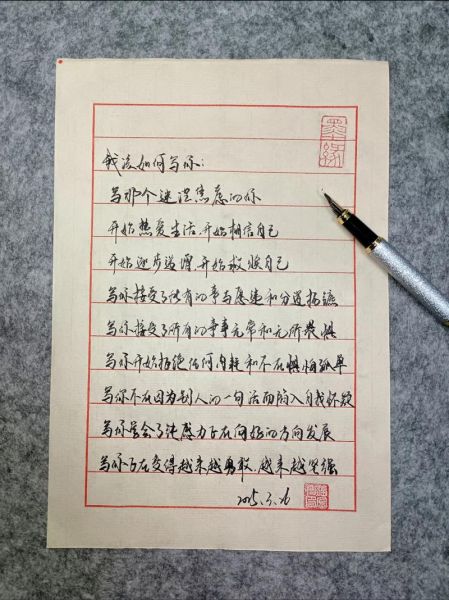 墨緣
我该如何写你：
写那个迷茫焦虑的你
开始热爱生活，开始相信自己
开始逐步，开始自己
写你接受了所有的事与愿违和分道扬镳
写你接受了所有的事事无常和无所畏惧
写你开始拒绝任何内耗和不在惧怕孤单
写你不在因为别人的一句话而陷入自我怀疑
写你学会了钝感力正在向好的方向发展
写你正在变得越来越勇敢，越来越坚强
2025.3.26